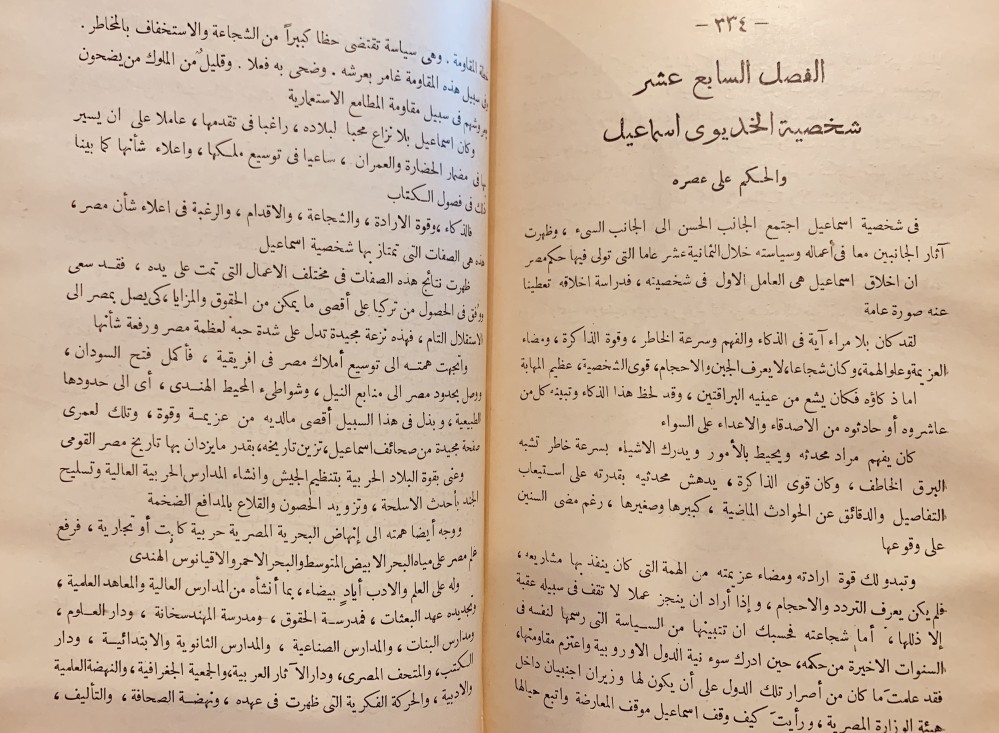 — ٣٣٤ —
الفصل السابع عشر
شخصية الخديوى اسماعيل
والحكم على عصره
فى شخصية اسماعيل اجتمع الجانب الحسن الى الجانب السىء ، وظهرت
آثار الجانبين معا فى أعماله وسياسته خلال الثمانية عشر عاما التى تولى فيها حكم مصر
ان اخلاق اسماعيل هى العامل الاول فى شخصيته ، فدراسة اخلاقه تعطينا
عنه صورة عامة
لقد كان بلا مراء آية فى الذكاء والفهم وسرعة الخاطر ، وقوة الذاكرة ، ومضاء
العزيمة وعلو الهمة ، وكان شجاعا ، لا يعرف الجبن والاحجام ، قوى الشخصية ، عظيم المهابة
اما ذكاؤه فكان يشع من عينيه البراقتين ، وقد لحظ هذا الذكاء وتبينه كل من
عاشروه أو حادثوه من الاصدقاء والاعداء على السواء
كان يفهم مراد محدثه ويحيط بالأمور ويدرك الاشياء بسرعة خاطر تشبه
البرق الخاطف ، وكان قوى الذاكرة ، يدهش محدثيه بقدرته على استيعاب
التفاصيل والدقائق عن الحوادث الماضية ، كبيرها وصغيرها ، رغم مضى السنين
على وقوعها
وتبدو لك قوة ارادته ومضاء عزيمته من الهمة التى كان ينفذ بها مشاريعه ،
فلم يكن يعرف التردد والاحجام ، وإذا أراد ان ينجز عملا لا تقف فى سبيله عقبة
إلا ذللها ، أما شجاعته فحسبك ان تتبينها من السياسة التى رسمها لنفسه فى
السنوات الاخيرة من حكمه ، حين ادرك سوء نية الدول الاوروبية واعتزم مقاومتها ،
فقد علمت ما كان من أصرار تلك الدول على أن يكون لها وزيران اجنبيان داخل
هيئة الوزارة المصرية ، ورأيت كيف وقف اسماعيل موقف المعارضة واتبع حيالها
المقاومة . وهى سياسة تقتضى حظا كبيراً من الشجاعة والاستخفاف بالمخاطر .
سبيل هذه المقاومة غامر بعرشه . وضحى به فعلا . وقليل من الملوك من يضحون
بعروشهم فى سبيل مقاومة المطامع الاستعمارية
وكان اسماعيل بلا نزاع محبا لبلاده ، راغبا فى تقدمها ، عاملا على ان يسير
بها فى مضمار الحضارة والعمران ، ساعيا فى توسيع ملكها ، واعلاء شأنها كما بينا
ذلك فى فصول الكتاب
فالذكاء ، وقوة الارادة ، والشجاعة ، والاقدام ، والرغبة فى اعلاء شأن مصر ،
هذه هى الصفات التى تمتاز بها شخصية اسماعيل
ظهرت نتائج هذه الصفات فى مختلف الاعمال التى تمت على يده ، فقد سعى
ووفق فى الحصول من تركيا على أقصى ما يمكن من الحقوق والمزايا ، كى يصل بمصر الى
الاستقلال التام ، فهذه نزعة مجيدة تدل على شدة حبه لعظمة مصر ورفعة شأنها
واتجهت همته الى توسيع أملاك مصر فى افريقية ، فأكمل فتح السودان ،
ووصل بحدود مصر الى منابع النيل ، وشواطىء المحيط الهندى ، أى الى حدودها
الطبيعية ، وبذل فى هذا السبيل أقصى مالديه من عزيمة وقوة ، وتلك لعمرى
صفحة مجيدة من صحائف اسماعيل ، تزين تاريخه ، بقدر ما يزدان بها تاريخ مصر القومى
وعنى بقوة البلاد الحربية بتنظيم الجيش وانشاء المدارس الحربية العالية وتسليح
الجند بأحدث الاسلحة ، وتزويد الحصون والقلاع بالمدافع الضخمة
ووجه أيضا همته الى إنهاض البحرية المصرية حربية كانت أو تجارية ، فرفع
علم مصر على مياه البحر الابيض المتوسط والبحر الاحمر والاقيانوس الهندى
وله على العلم والادب أياد بيضاء ، بما أنشأه من المدارس العالية والمعاهد العلمية ،
وتجديده عهد البعثات ، فمدرسة الحقوق ، ومدرسة المهندسخانة ، ودار العلوم ،
ومدارس البنات ، والمدارس الصناعية ، والمدارس الثانوية والابتدائية ، ودار
الكتب ، والمتحف المصرى ، ودار الآثار العربية ، والجمعية الجغرافية ، والنهضة العلمية
والادبية ، والحركة الفكرية التى ظهرت فى عهده ، ونهضة الصحافة ، والتأليف ،